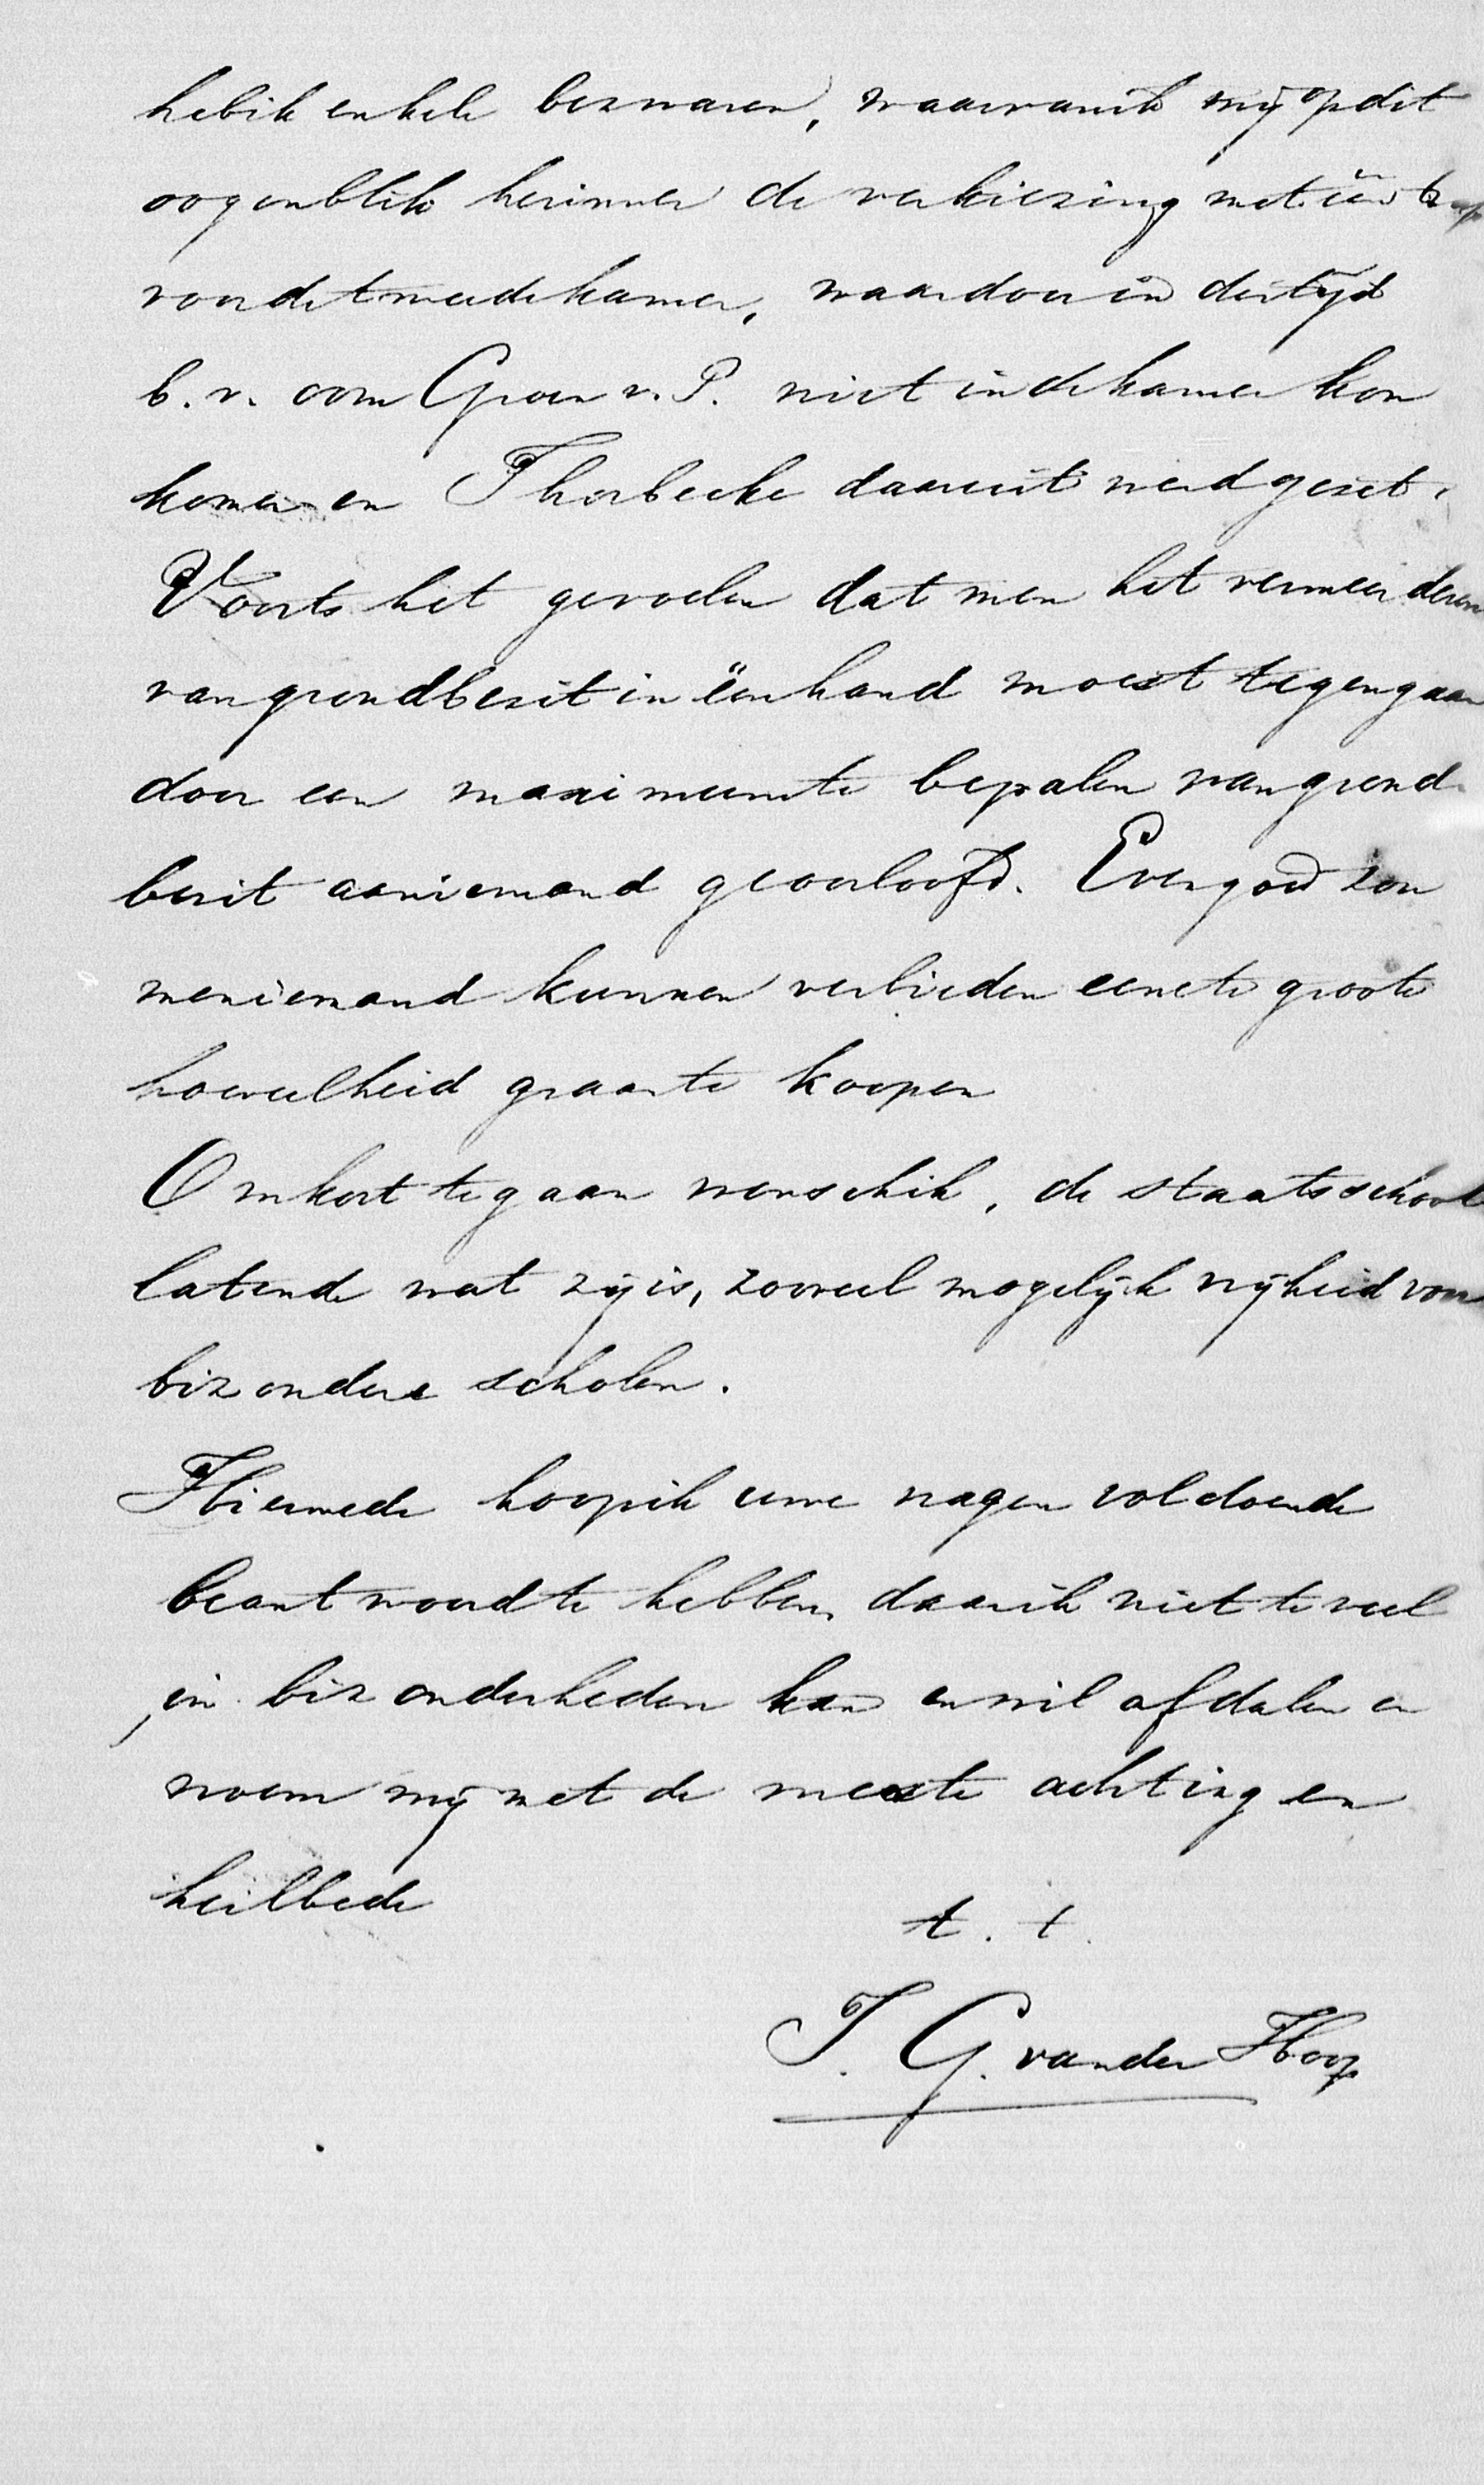 heb ik enkele bezwaren, waarvan ik mij op dit
oogenblik herinner de verkiezing met één trap
voor de tweede kamer, waardoor in der tijd
b. v. oom Groen v. P. niet in de kamer kon
komen en Thorbecke daaruit werd gezet.
Voorts het gevoelen dat men het vermeerderen
van grondbezit in één hand moest tegengaan
door een maximum te bepalen van grond-
bezit aan iemand geoorloofd. Evengoed zou
men iemand kunnen verbieden eene te groote
hoeveelheid graan te koopen
Om kort te gaan wensch ik, de staatsschool
latende wat zij is, zooveel mogelijk vrijheid voor
bizondere scholen.
Hiermede hoop ik uwe vragen voldoende
beantwoord te hebben, daar ik niet te veel
in bizonderheden kan en wil afdalen en
noem mij met de meeste achting en
heilbede
t. t.
J. G. van der Hoop